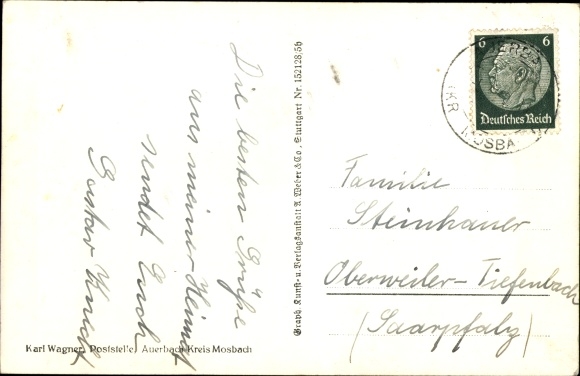 Die besten Grüße
aus meiner Heimat
sendet Euch
Gustav
Karl Wagner, Poststelle, Auerbach Kreis Mosbach
Graph. Kunst- u. Verlagsanstalt A. Weber & Co., Stuttgart Nr. 152128/5b
6 6
Deutsches Reich
KR. MOSBA
Familie
Steinhauer
Oberweiler-Tiefenbach
(Saarpfalz)